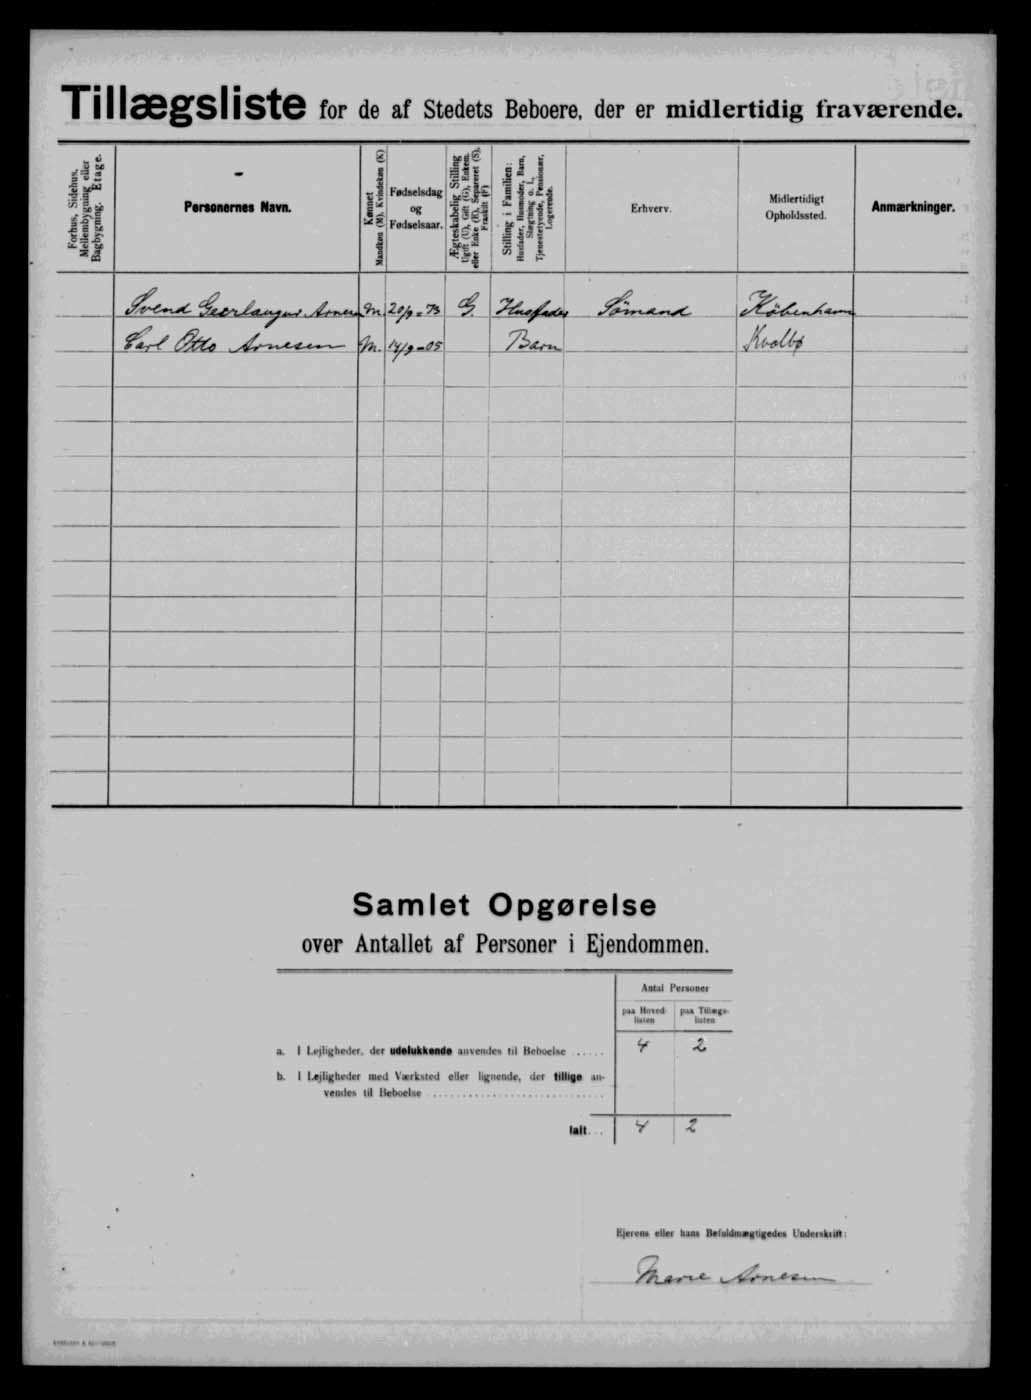 Tillægsliste for de af Stedets Beboere, der er midlertidig fraværende.
Forhus, Sidehus, Mellembygning eller Bagbygning. Etage.
Personernes Navn.
Kønnet
Mandkøn (M), Kvindekøn (K)
Fødselsdag
og
Fødselsaar.
Ægteskabelig Stilling
Ugift (U), Gift (G), Enkem. eller Enke (E), Separeret (S), Fraskilt (F)
Stilling i Familien:
Husfader, Husmoder, Barn, Slægtning o. l., Tjenestetyende, Pensionær, Logerende.
Erhverv.
Midlertidigt
Opholdssted.
Anmærkninger.
Svend Arnesen M. 20/9-73 G. Husfader Sömand København
Carl Otto Arnesen M. 14/9-05 Barn Kvalbø
Samlet Opgørelse
over Antallet af Personer i Ejendommen.
Antal Personer
paa Hoved-
listen
paa Tillægs-
listen
a. I Lejligheder, der udelukkende anvendes til Beboelse ...... 4 2
b. I Lejligheder med Værksted eller lignende, der tillige an-
vendes til Beboelse
Ialt... 4 2
Ejerens eller hans Befuldmægtigedes Underskrift:
Marie Arnesen